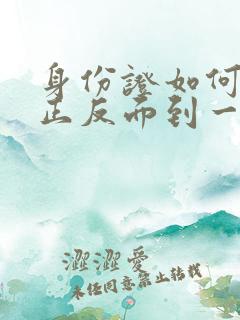 身份證如何
正反面到一
澀澀愛
未经同意禁止转载